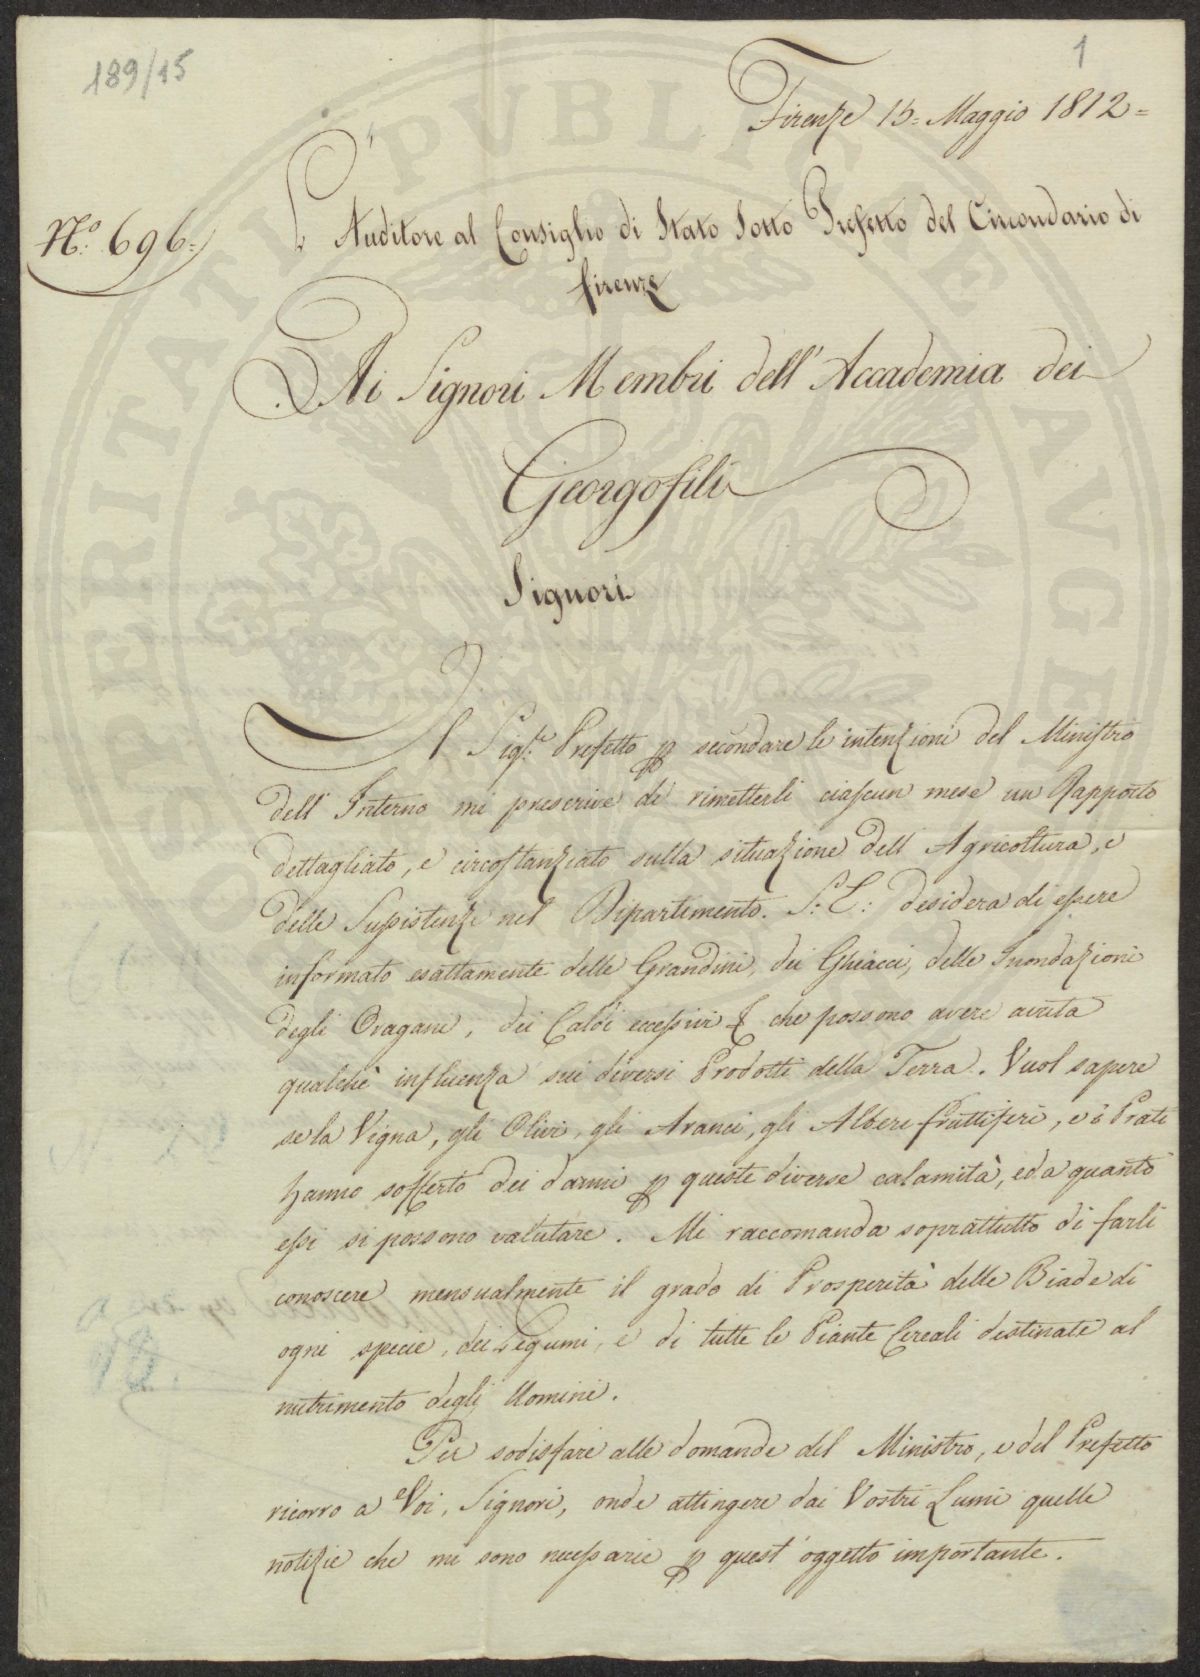 189/15
1
Firenze 15= Maggio 1812=
N.o 696=
L'Auditore al Consiglio di Stato Sotto Prefetto del Circondario di
Firenze
Ai Signori Membri dell'Accademia dei
Georgofili
Signori
Il Sig.re Prefetto p secondare le intenzioni del Ministro
dell'Interno mi prescrive di rimetterli ciascun mese un Rapporto
dettagliato, e circostanziato sulla situazione dell'Agricoltura, e
delle Sussistenze nel Dipartimento. S: E: desidera di essere
informato esattamente delle Grandini, dei Ghiacci, delle Inondazioni
degli Oragani, dei Caldi eccessivi & che possono avere avuta
qualche influenza sui diversi Prodotti della Terra. Vuol sapere
se la Vigna, gli Olivi, gli Aranci, gli Alberi fruttiferi, e i Prati
hanno sofferto dei danni p queste diverse calamità, ed a quanto
essi si possono valutare. Mi raccomanda soprattutto di farli
conoscere mensualmente il grado di Prosperità delle Biade di
ogni specie, dei Legumi, e di tutte le Piante Cereali destinate al
nutrimento degli Uomini.
Per sodisfare alle domande del Ministro, e del Prefetto
ricorro a Voi, Signori, onde attingere dai Vostri Lumi quelle
notizie che mi sono necessarie p quest'oggetto importante.
PROSPERITATI PVBLICAE AVGENDAE